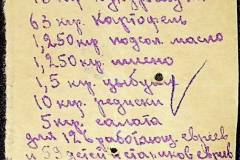 63 кгр. картофель
1,250 кгр. подсол. масло
1,250 кгр. пшено
1,5 кгр. цыбули
10 кгр. редиски
5 кгр. салата
для 126 работающ. евреев
и 59 детей